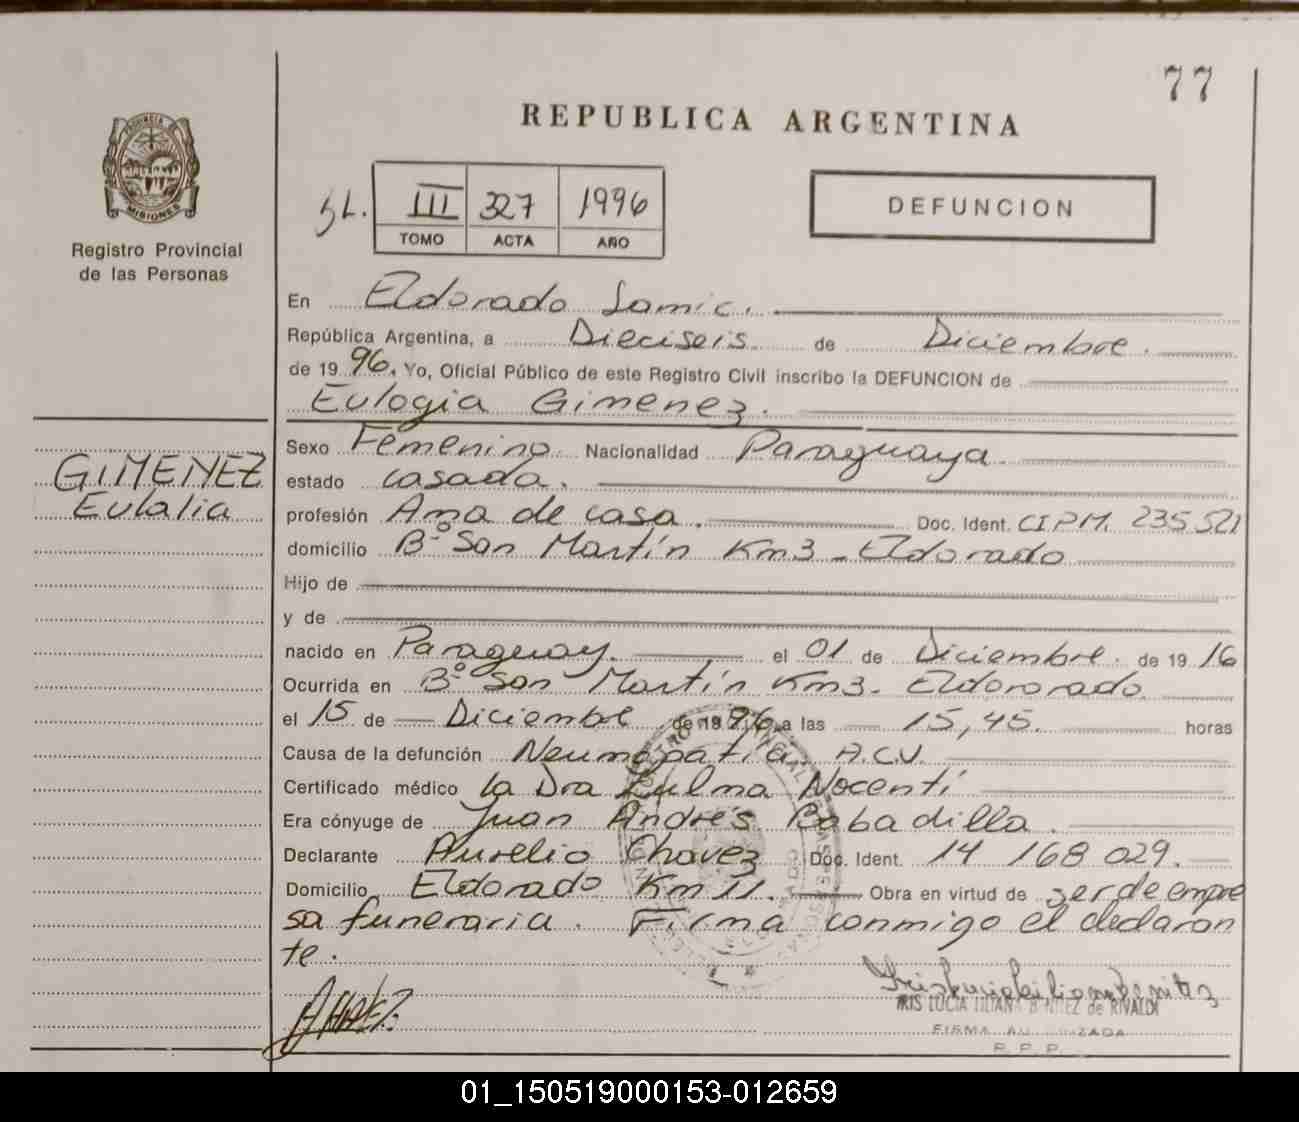 77
REPUBLICA ARGENTINA
PROVINCIA DE
MISIONES
Registro Provincial
de las Personas
III 327 1996
TOMO ACTA AÑO
DEFUNCION
En Eldorado Samic.
República Argentina, a Dieciseis de Diciembre.
de 19 96. Yo, Oficial Público de este Registro Civil inscribo la DEFUNCION de
Eulogia Gimenez.
GIMENEZ
Eulalia
Sexo Femenino Nacionalidad Paraguaya
estado casada.
profesión Ama de casa. Doc. Ident. CIPM. 235 521
domicilio Bº San Martín Km3 - Eldorado
Hijo de
y de
nacido en Paraguay. el 01 de Diciembre. de 19 16
Ocurrida en Bº San Martín Km3. Eldororado
el 15 de Diciembre de 19 96. a las 15,45. horas
Causa de la defunción Neumopatía A.C.V.
Certificado médico la Dra Zulma Nocenti
Era cónyuge de Juan Andrés Bobadilla.
Declarante Aurelio Chavez Doc. Ident. 14 168 029.
Domicilio Eldorado Km 11. Obra en virtud de ser de empre
sa funeraria. Firma conmigo el declaran
te.
IRIS LUCIA LILIANA BENITEZ de RIVALDI
FIRMA AUTORIZADA
R.P.P.
01_150519000153-012659